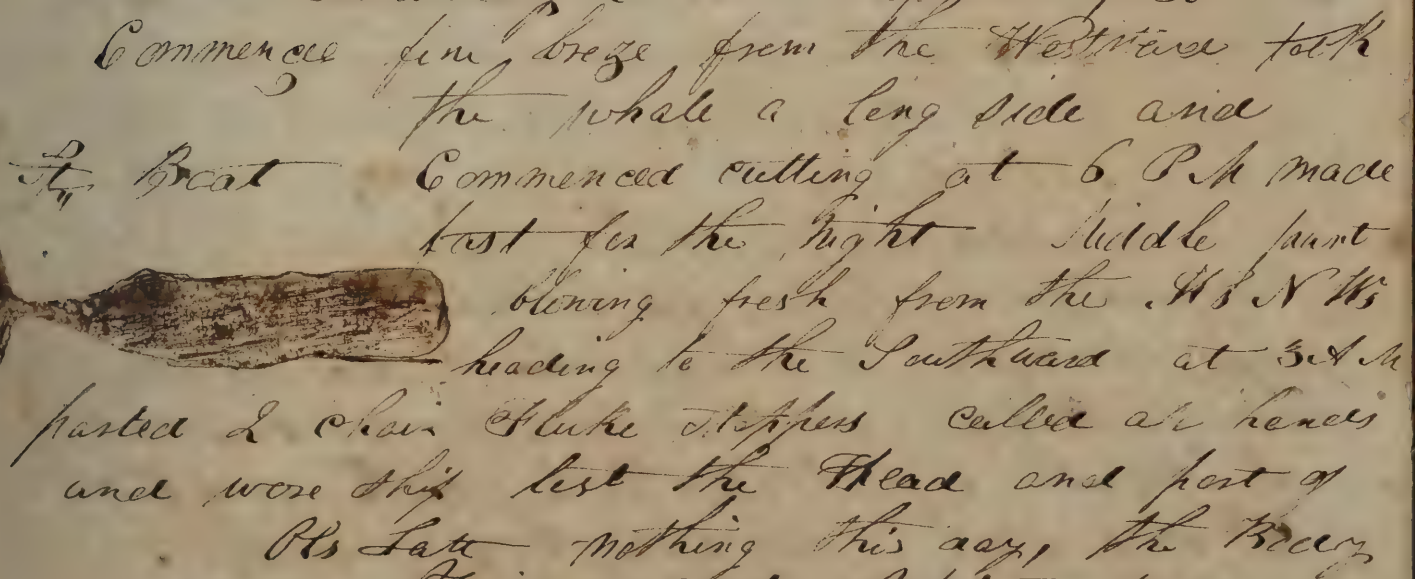 Commence fine breze from the Westward took
the whale a long side and
St,, Boat Commenced cutting at 6 P M made
fast for the night Middle paart
blowing fresh from the N W
heading to the Southward at 3 A M
parted 2 chain Fluke stoppers called al hands
and wore ship lost the Head and part of
Obs Latt nothing this day, the Body